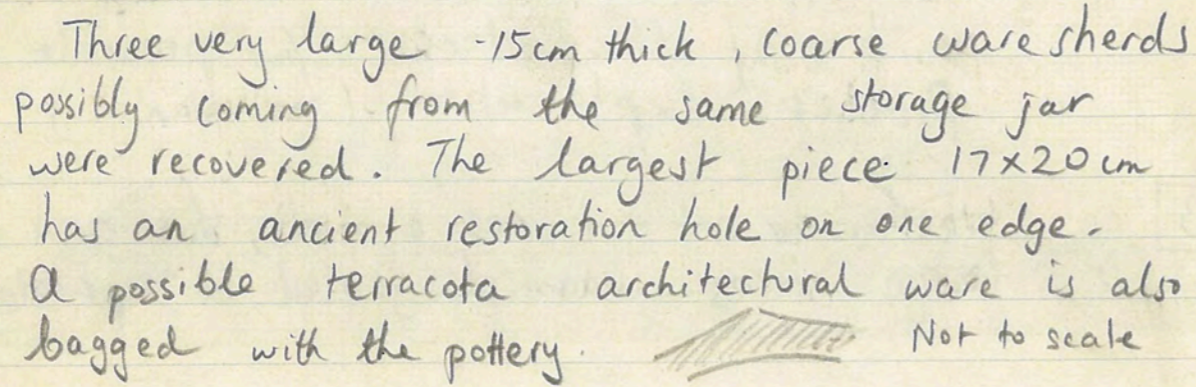 Three very large -15cm thick, coarse ware sherds
possibly coming from the same storage jar
were recovered. The largest piece 17x20cm
has an ancient restoration hole on one edge.
A possible terracota architectural ware is also
bagged with the pottery. Not to scale